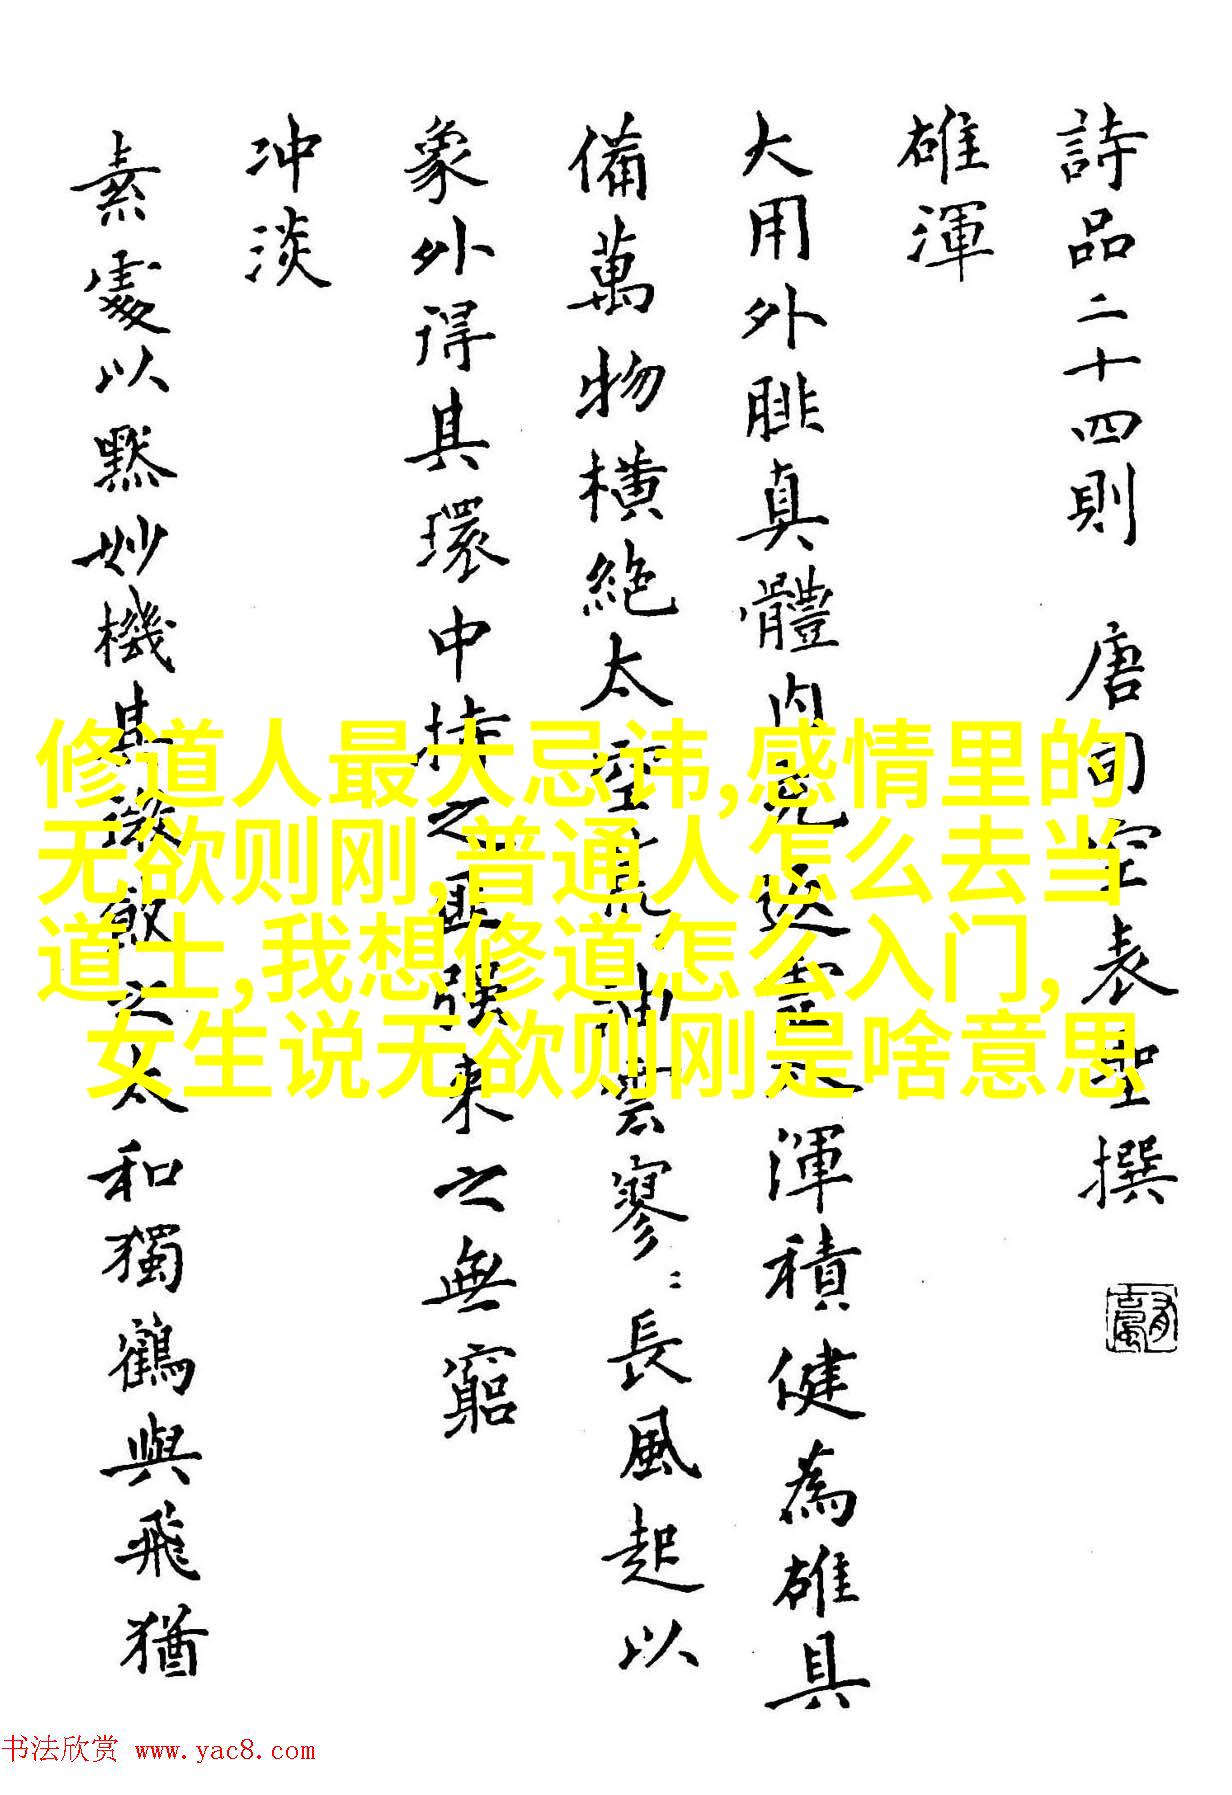 詩品二十四則 唐司空表聖撰
雄渾
大用外腓真體内充返虛入渾積健為雄具
備萬物橫絶太空荒荒油雲寥：長風起以
象外得其環中持之匪强来之無窮
冲淡
素處以默妙機其微飲之太和獨鶴與飛猶
修道人最大忌讳,感情里的
无欲则刚,普通人怎么去当
道士,我想修道怎么入门,
女生说无欲则刚是啥意思
书法欣赏 www.yac8.com